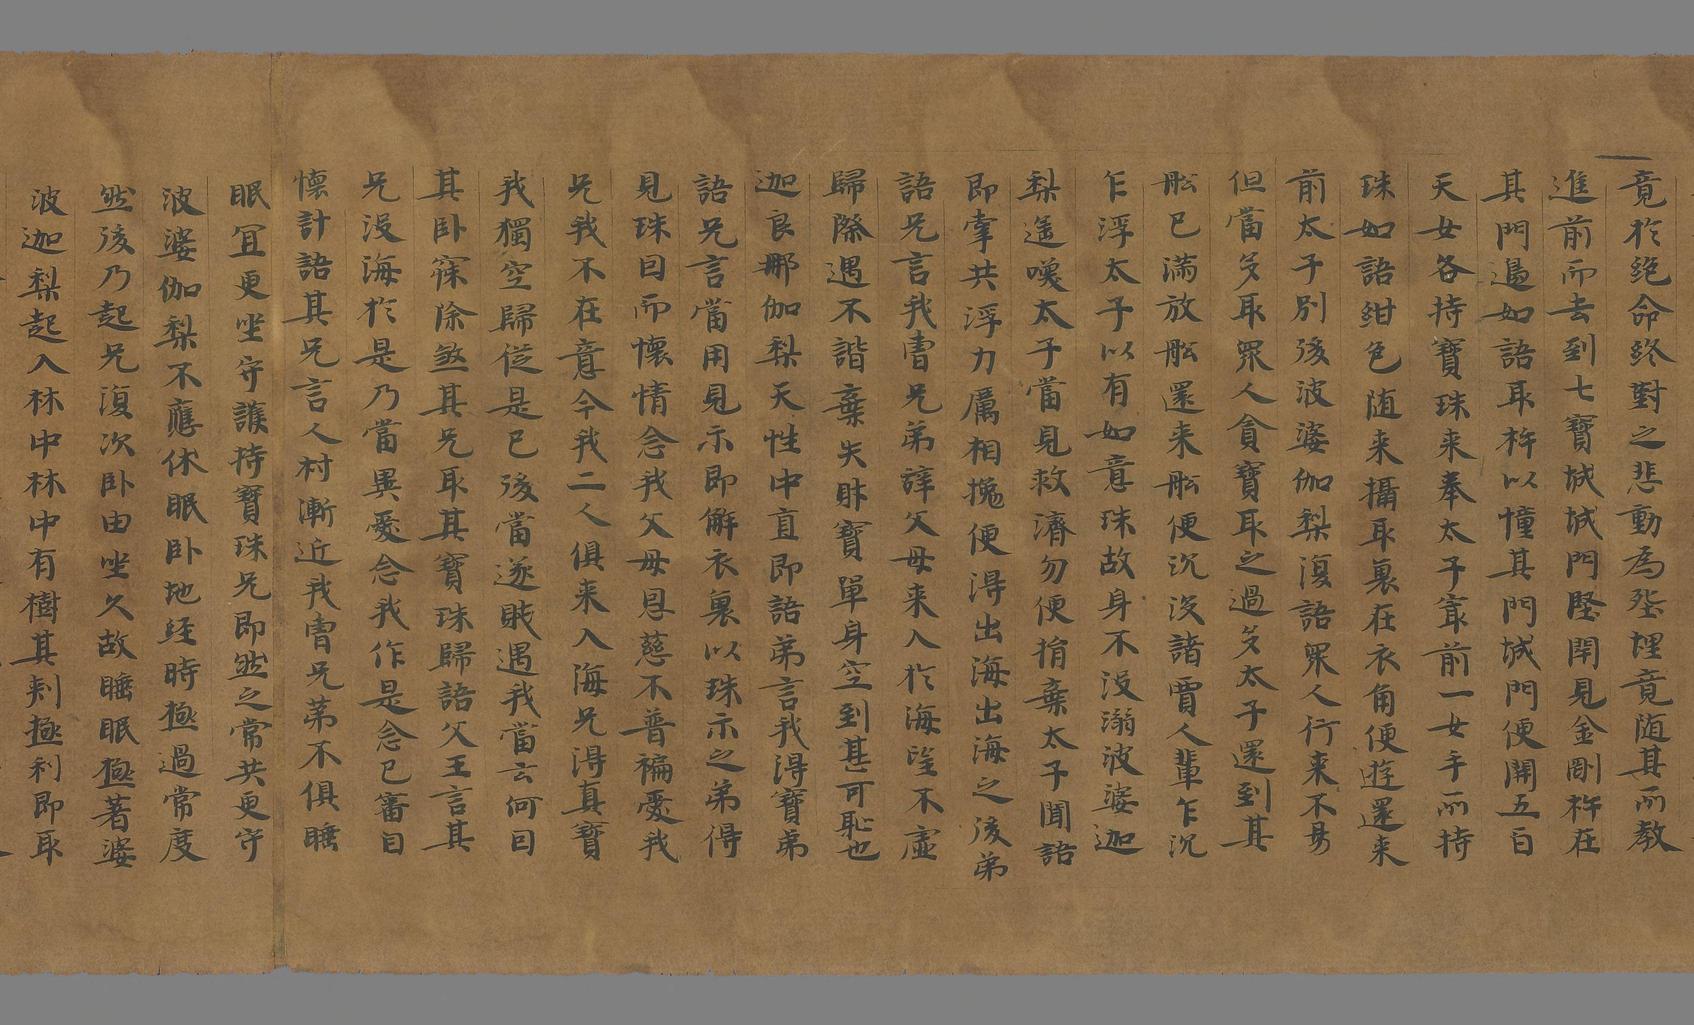 竟於絕命終對之悲動為㘸埋竟随其所教
進前而去到七寶城城門堅閇見金剛杵在
其門邊如語取杵以憧其門城門便開五百
天女各持寶珠来奉太子寂前一女手所持
珠如語紺色随来攝取裏在衣角便遊還来
前太子別後波婆伽梨復語眾人行来不易
但當多取眾人貪寶取之過多太子還到其
舩已滿放舩還来舩便沉没諸賈人輩乍沉
乍浮太子以有如意珠故身不没溺波婆迦
梨遥嘆太子當見救濟勿便捐棄太子聞語
即牽共浮力厲相攙便得出海出海之後弟
語兄言我曹兄弟辭父母来入於海望不虛
歸際遇不諧棄失財寶單身空到甚可恥也
迦良那伽梨天性中直即語弟言我得寶弟
語兄言當用見示即解衣裏以珠示之弟得
見珠因而懷情念我父母恩慈不普褊愛我
兄我不在意今我二人俱来入海兄得真寶
我獨空歸従是已後當遂賎遇我當云何因
其卧寐除煞其兄取其寶珠歸語父王言其
兄没海於是乃當異愛念我作是念已審自
懷計語其兄言人村漸近我曹兄弟不俱睡
眠冝更坐守護持寶珠兄即然之常共更守
波婆伽梨不應休眠卧地経時極過常度
然後乃起兄復次卧由坐久故睡眠極著婆
波迦梨起入林中林中有樹其刾極利即取